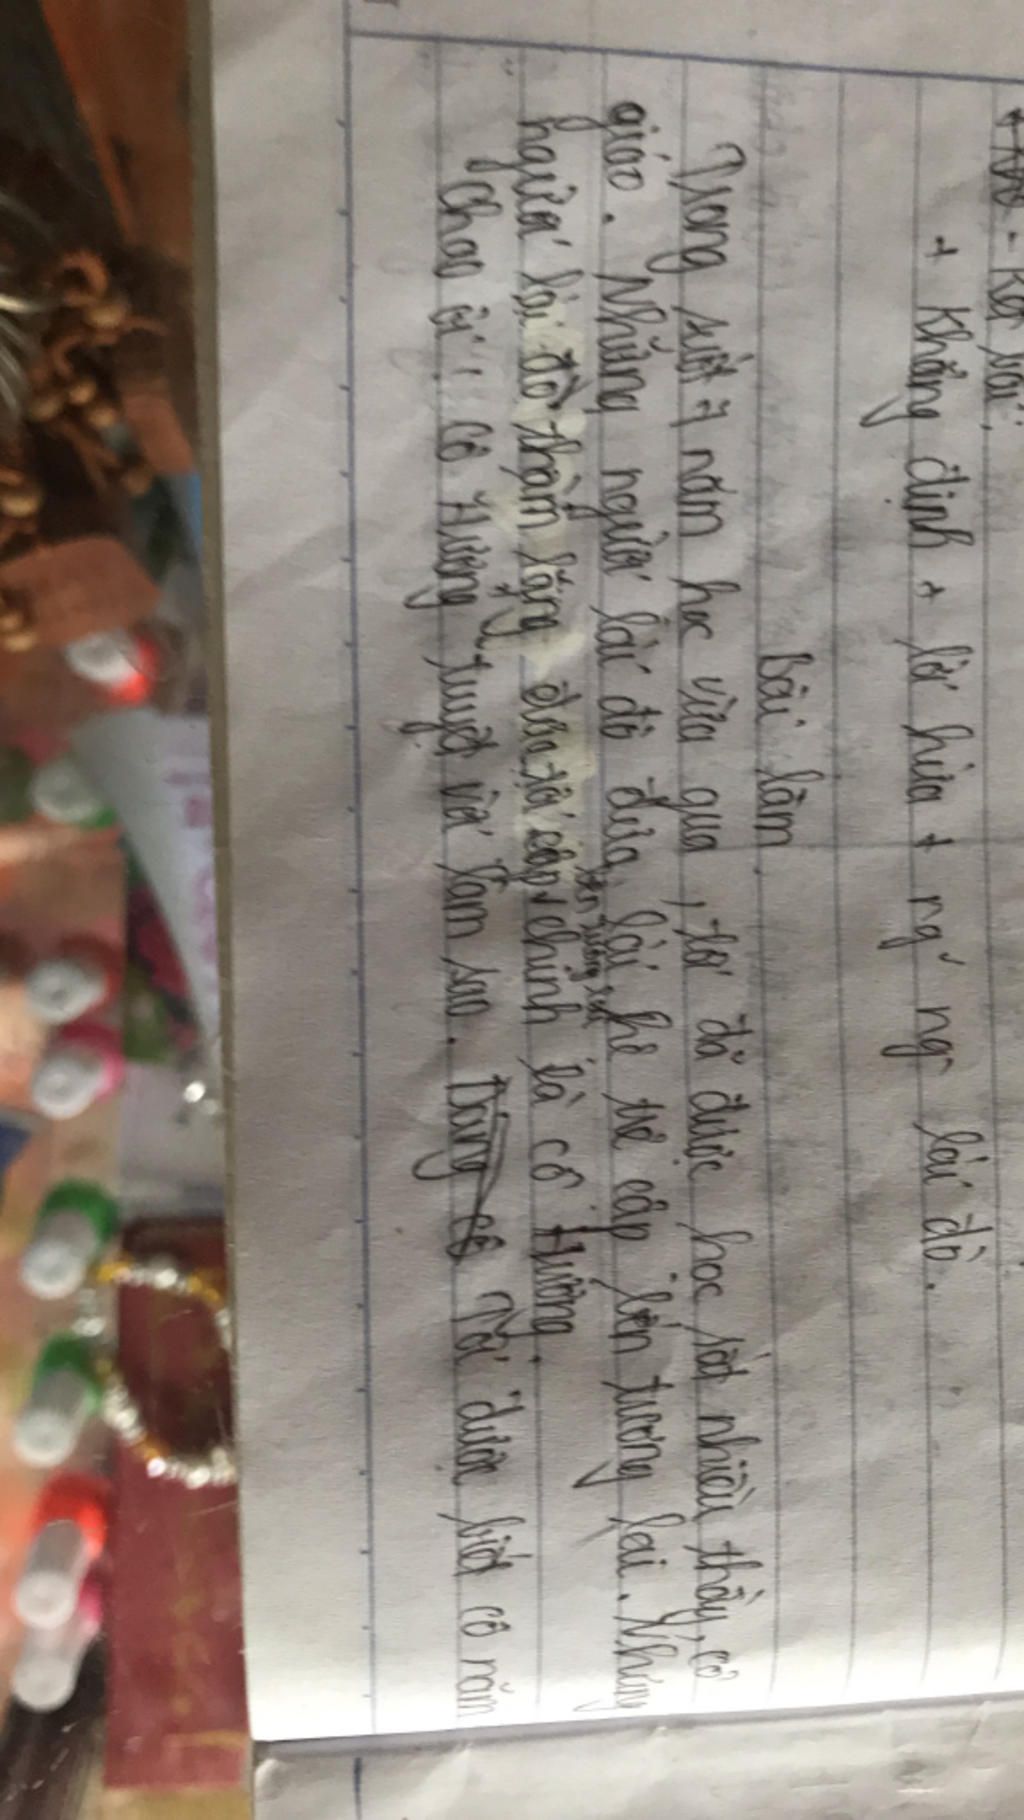 + Khẳng định + lời hứa + ng² ng` lái đò.
Bài làm.
Trong suốt 7 năm học vừa qua, tôi đã được học rất nhiều thầy, cô
giáo. Những người lái đò đưa lái hê trẻ cập bến tương lai. Nhưng
người lái đò thầm lặng đưa tôi cập chính là cô Hường.
Chao ôi! Cô Hường tuyệt vời làm sao. Tôi được biết cô năm